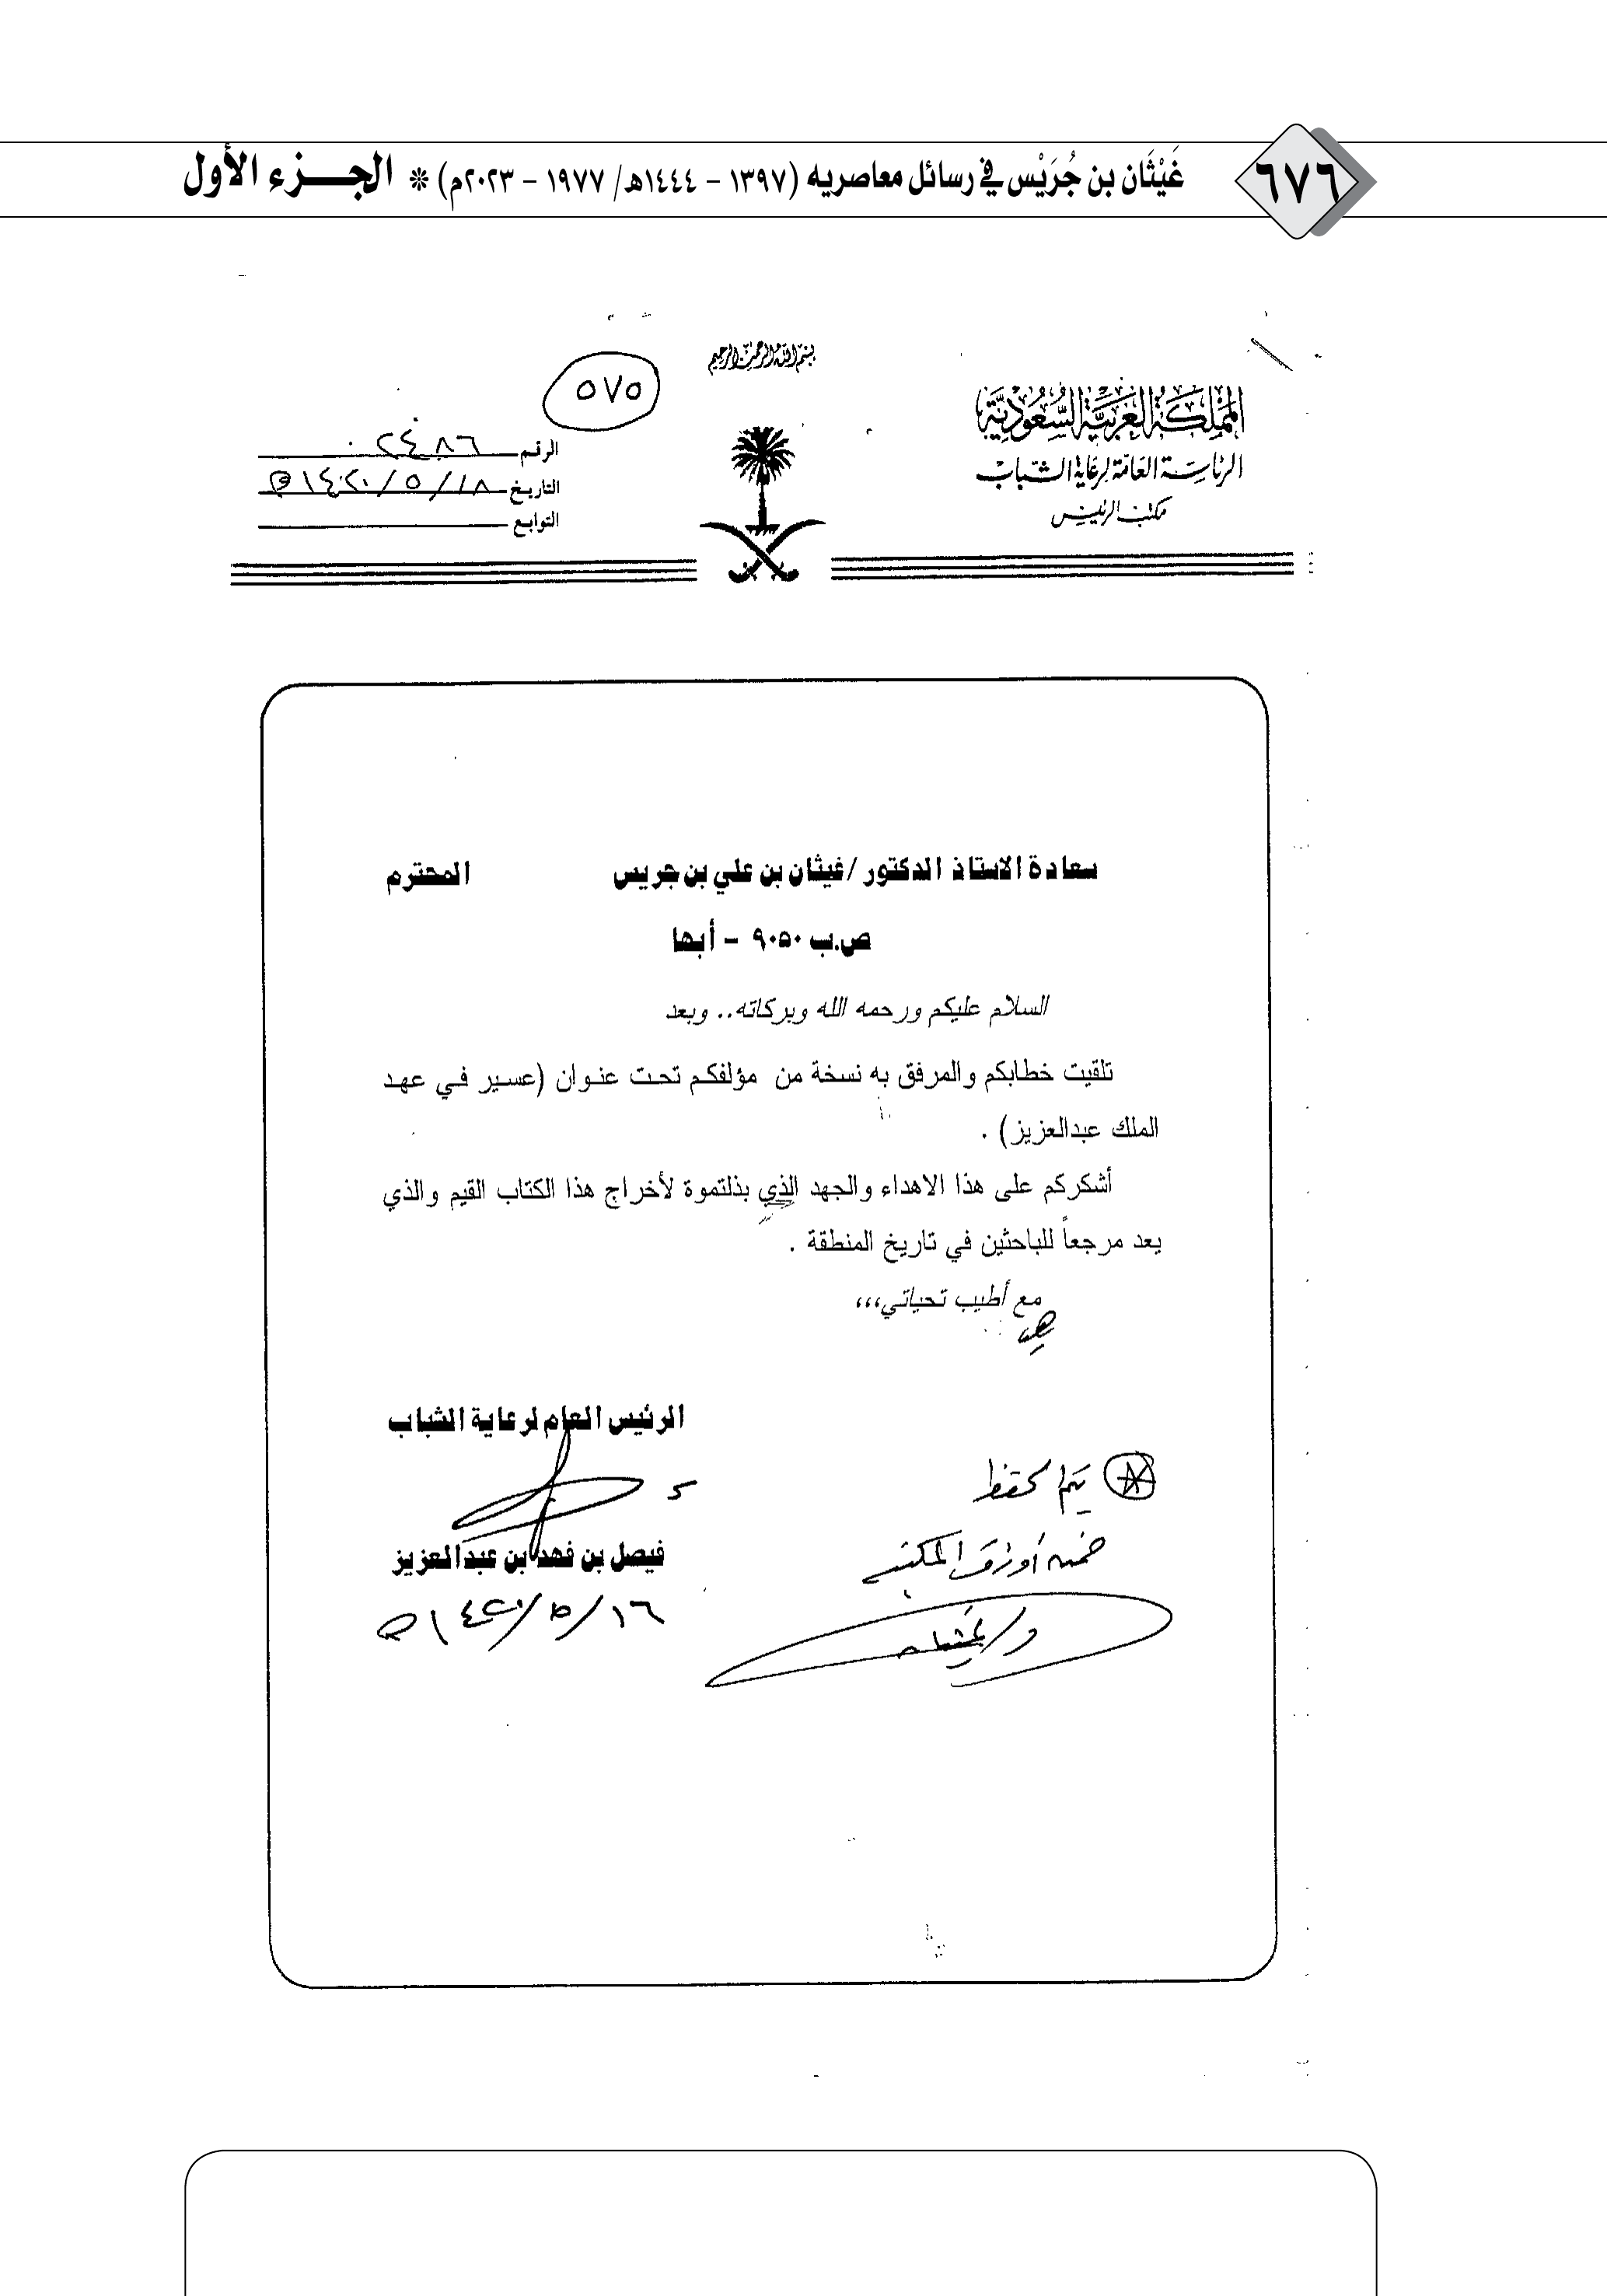 ٦٧٦
غَيْثَان بن جُرَيْس في رسائل معاصريه (١٣٩٧ - ١٤٤٤هـ/ ١٩٧٧ - ٢٠٢٣م) * الجـــزء الأول
بسم الله الرحمن الرحيم
المملكة العربية السعودية
الرئاسة العامة لرعاية الشباب
مكتب الرئيس
٥٧٥
الرقم ٠٢٤٨٦
التاريخ ١٤٢٠/٥/١٨هـ
التوابع
سعادة الاستاذ الدكتور /غيثان بن علي بن جريس المحترم
ص.ب ٩٠٥٠ - أبها
السلام عليكم ورحمه الله وبركاته.. وبعد
تلقيت خطابكم والمرفق به نسخة من مؤلفكم تحت عنوان (عسير في عهد
الملك عبدالعزيز) .
أشكركم على هذا الاهداء والجهد الذي بذلتموة لأخراج هذا الكتاب القيم والذي
يعد مرجعاً للباحثين في تاريخ المنطقة .
مع أطيب تحياتي،،،
الرئيس العام لرعاية الشباب
فيصل بن فهد بن عبدالعزيز
١٤٢٠/٥/١٦هـ
يتم حفظ
ضمن أوراق المكتبة
د/غيثان